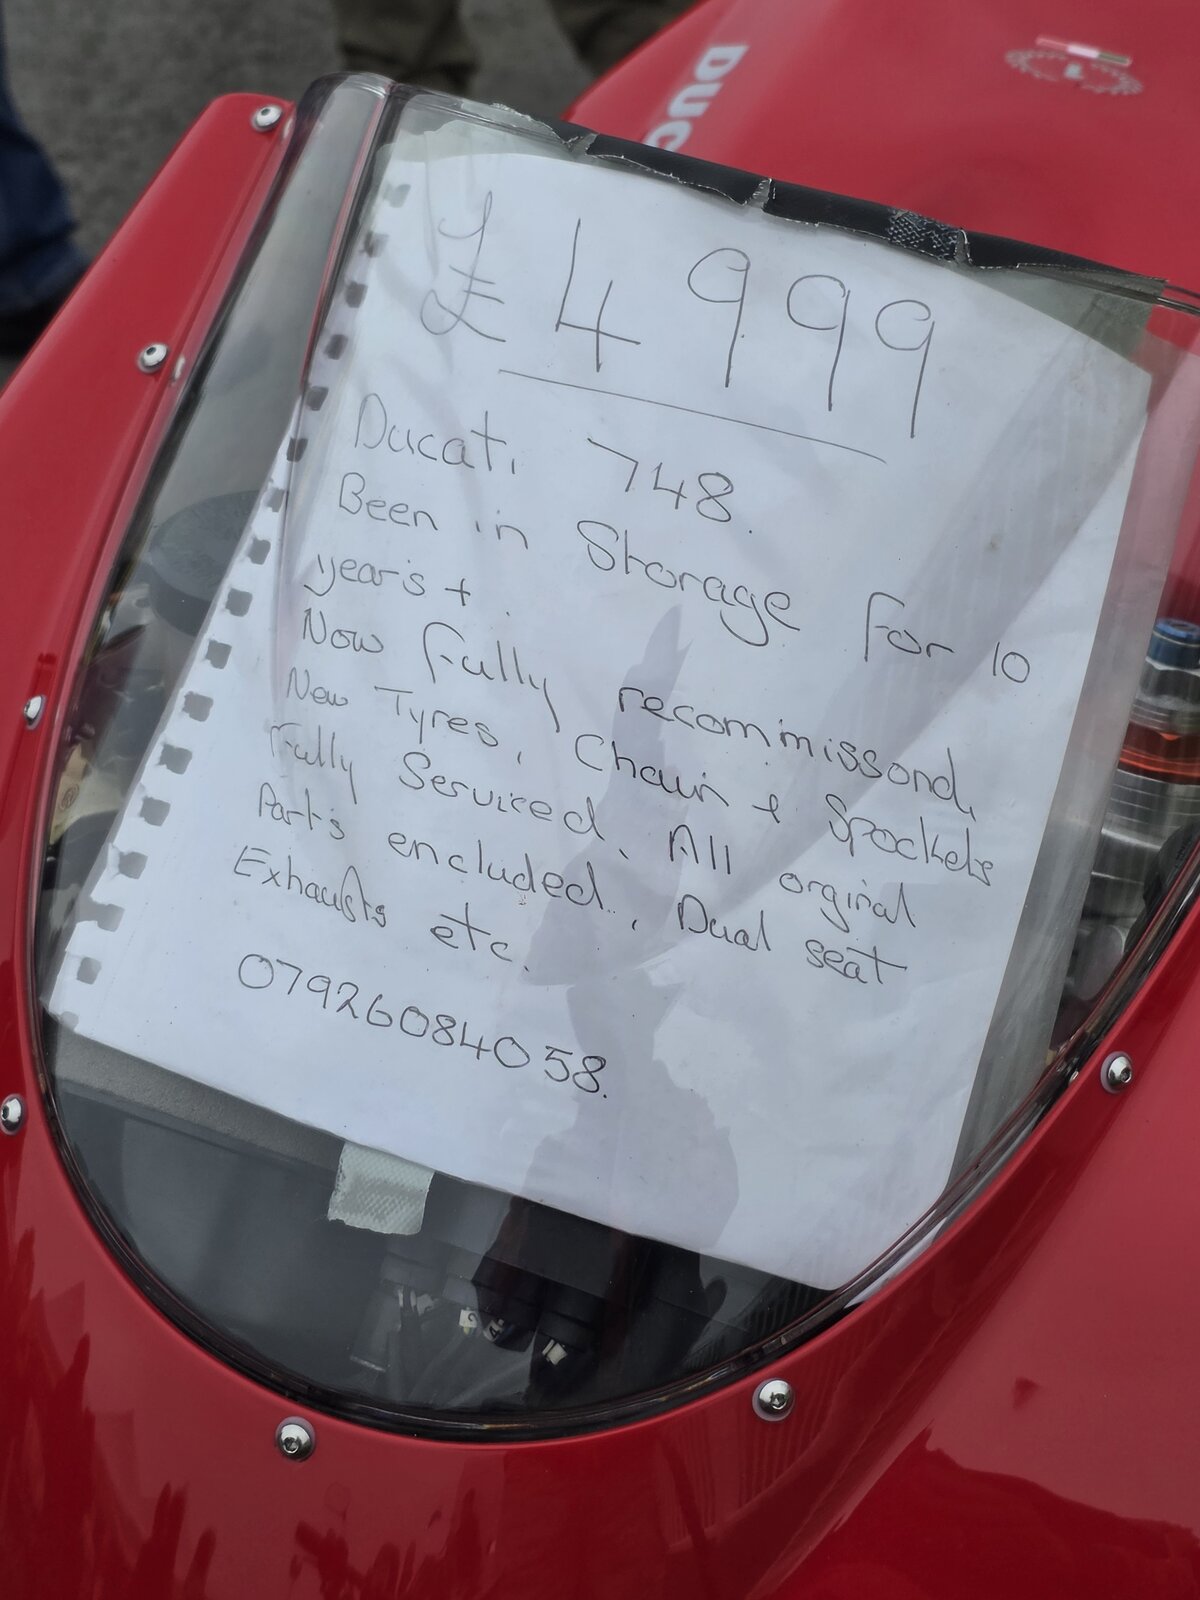 DUC
£4999
Ducati 748.
Been in Storage for 10
years +.
Now fully recommissond,
New Tyres, Chain + Spockets
Fully Serviced. All orginal
Parts encluded., Dual seat
Exhausts etc.
07926084058.